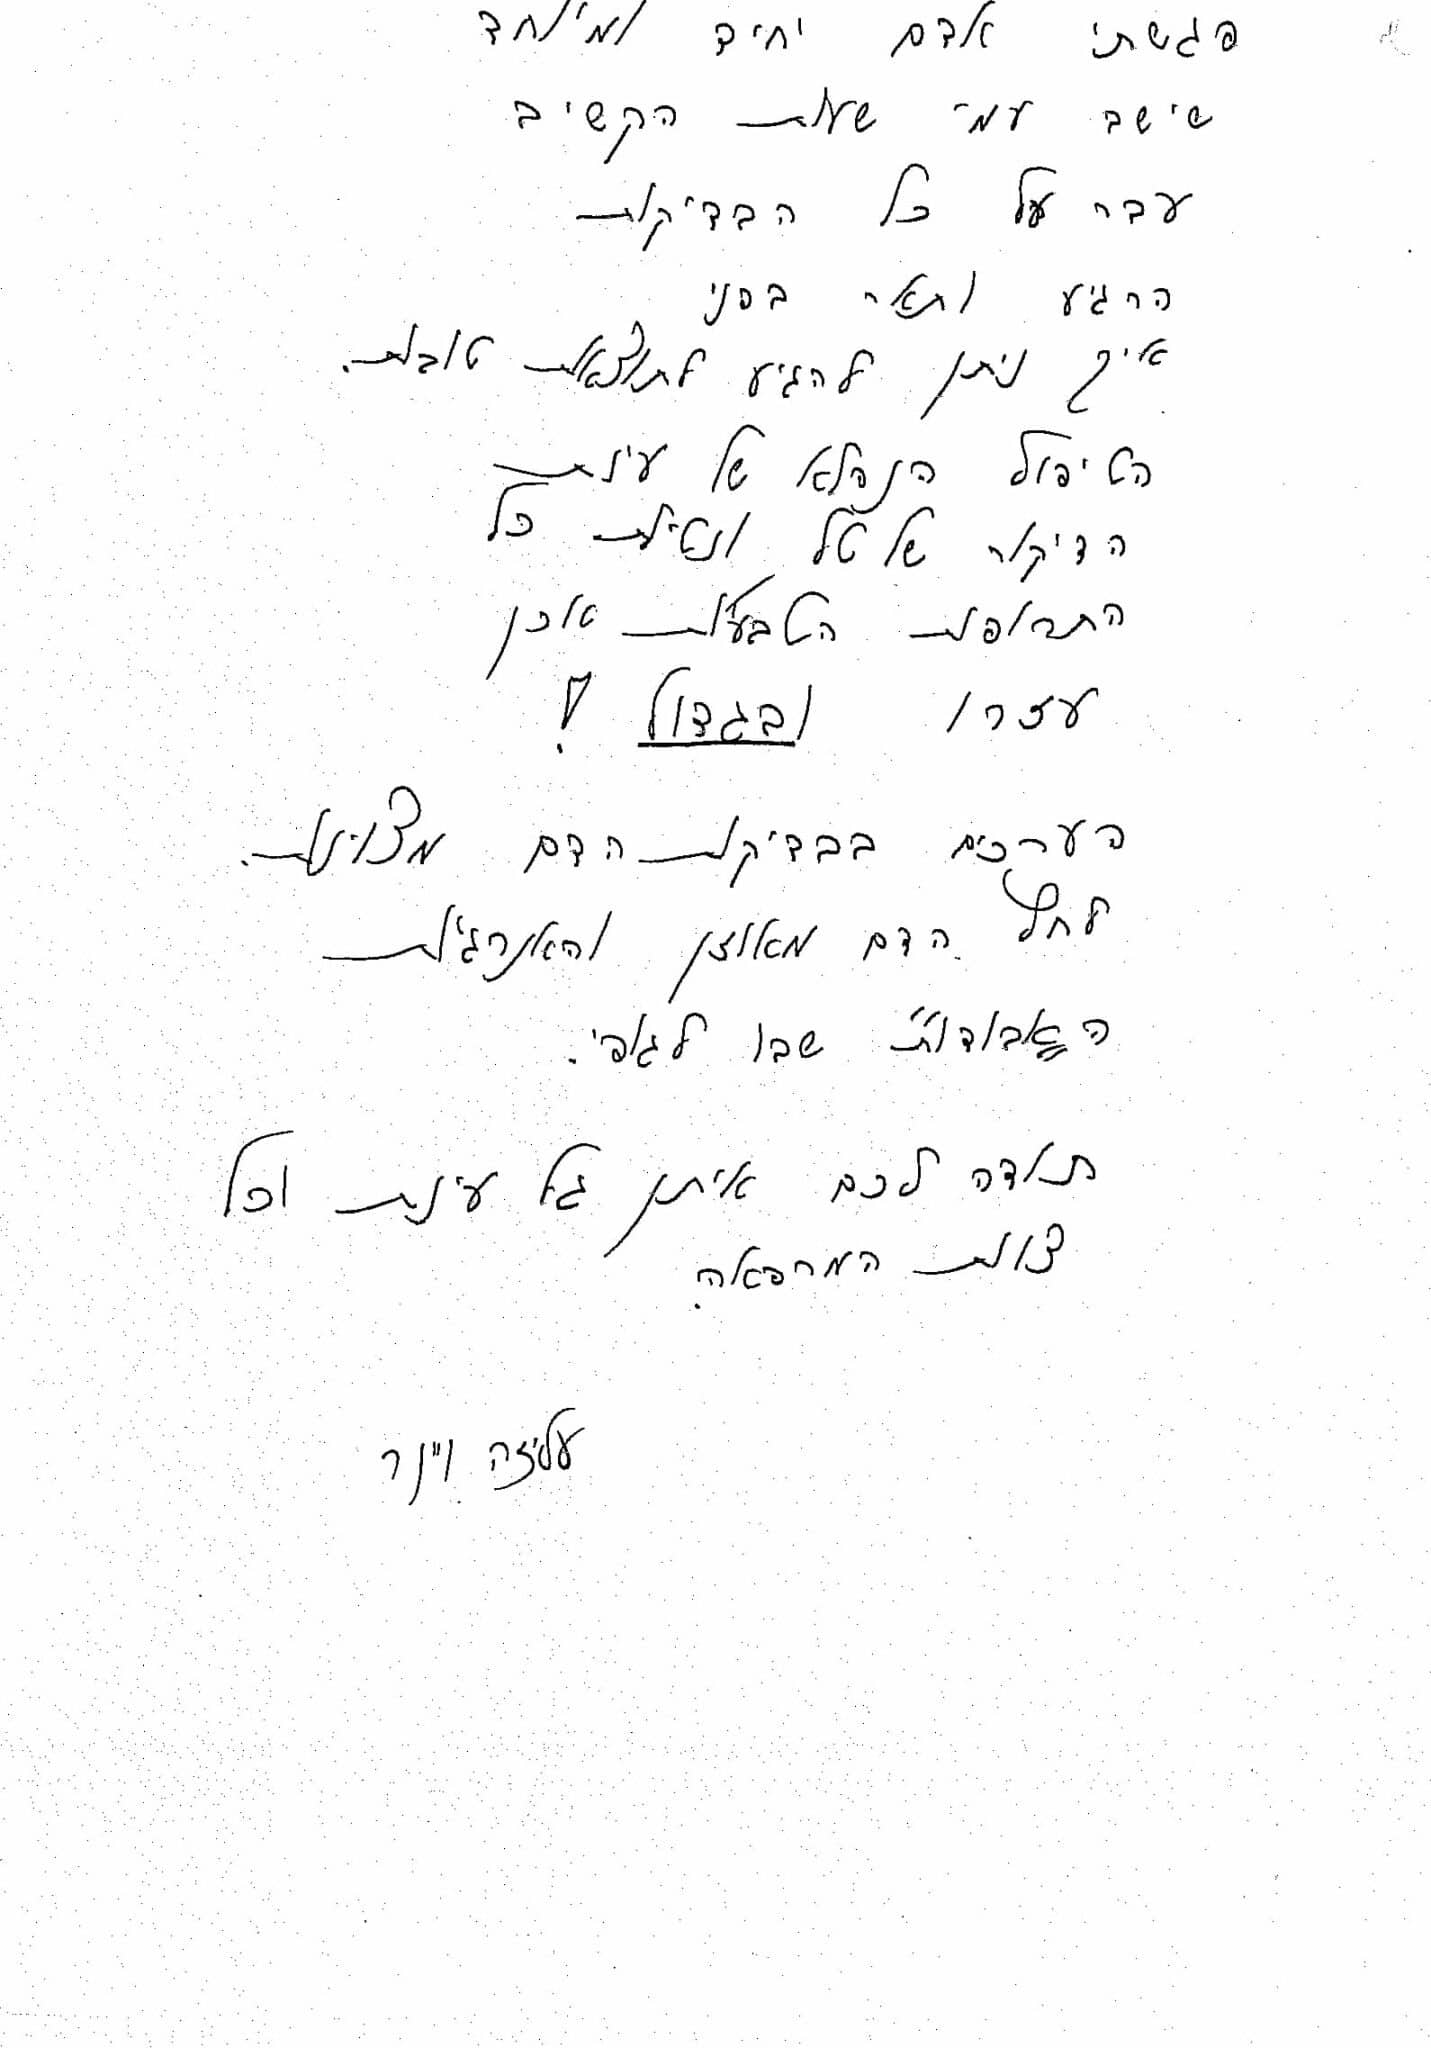 פגשתי אדם יחיד ומיוחד
שישב עמי שעות הקשיב
עבר על כל הבדיקות
הרגיע ותאר בפני
איך ניתן להגיע לתוצאות טובות.
הטיפול הנפלא של עינת
הדיקור של טל ונטילת כל
התרופות הטבעיות אכן
עזרו ובגדול!
הערכים בבדיקות הדם מצוינות.
לחץ הדם מאוזן והאנרגיות
ה"אבודות" שבו לגופי.
תודה לכם איתן גל עינת וכל
צוות המרפאה.
עליזה וינר